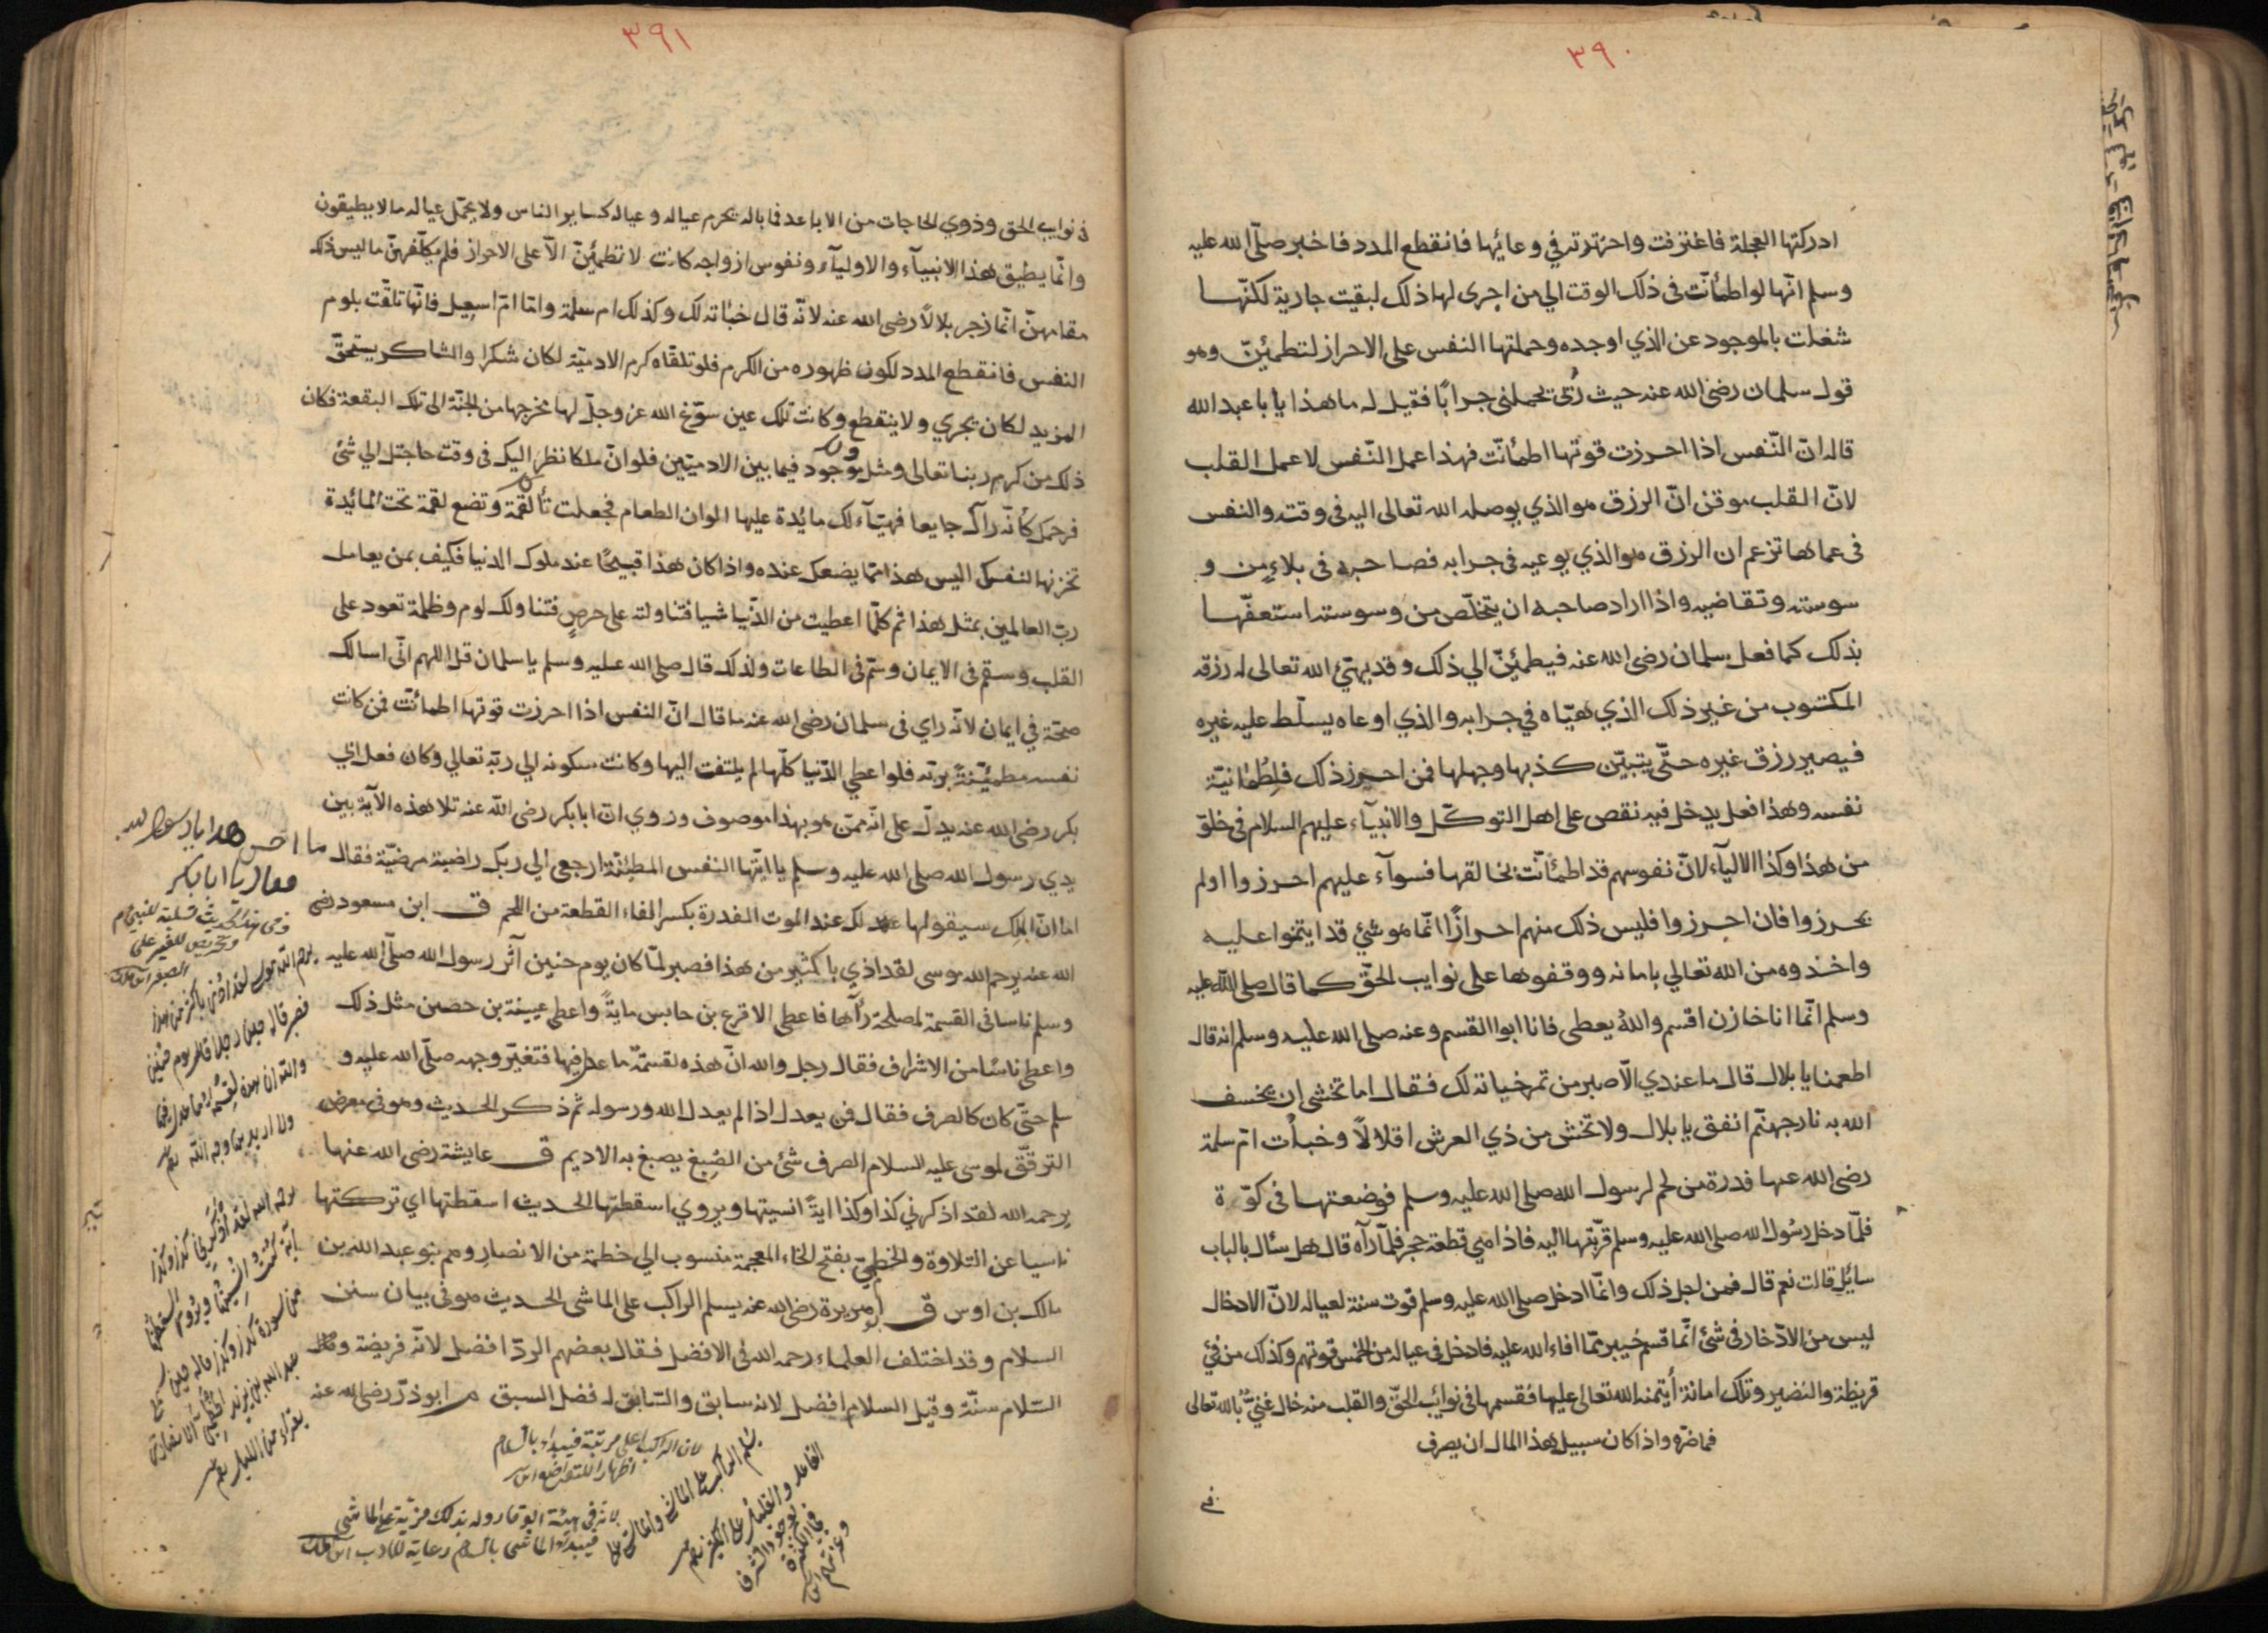 ٣٩٠
ادركتها العجلة فاغترفت واحترزته في وعائها فانقطع المدد فاخبر صلّى الله عليه
وسلم انّها لو اطمأنّت فى ذلك الوقت الي من اجرى لها ذلك لبقيت جارية لكنّها
شغلت بالموجود عن الذي اوجده وحملتها النفس على الاحراز لتطمئنّ وهو
قول سلمان رضى الله عنه حيث رُئى يحمل جرابًا فقيل له ما هذا يا با عبد الله
قال انّ النّفس اذا احرزت قوتها اطمأنّت فهذا عمل النّفس لا عمل القلب
لانّ القلب موقن انّ الرزق هو الذي يوصله الله تعالى اليه فى وقته والنفس
فى عماها تزعم ان الرزق هو الذي يوعيه فى جرابه فصاحبه فى بلاءٍ من و
سوسته وتقاضيه واذا اراد صاحبه ان يتخلّص من وسوسته استعفّها
بذلك كما فعل سلمان رضى الله عنه فيطمئنّ الي ذلك وقد يهيّئ الله تعالى له رزقه
المكتوب من غير ذلك الذي هيّاه في جرابه والذي اوعاه يسلّط عليه غيره
فيصير رزق غيره حتّى يتبيّن كذبها وجهلها فمن احرز ذلك فلطُمانيّة
نفسه وهذا فعل يدخل فيه نقص على اهل التوكّل والانبيآء عليهم السلام فى خلوّ
من هذا وكذا الاليآء لانّ نفوسهم قد اطمأنّت بخالقها فسوآء عليهم احرزوا اولم
يحرزوا فان احرزوا فليس ذلك منهم احرازًا انّما هو شئ قد ايتمنوا عليه
واخذوه من الله تعالي بامانه ووقفوها على نوايب الحقّ كما قال صلى الله عليه
وسلم انّما انا خازن اقسم واللهُ يعطى فانا ابوا القسم وعنه صلى الله عليه وسلم انه قال
اطعمنا يا بلال قال ما عندي الّا صبر من تمر خباته لك فقال اما تخشى ان يخسف
الله به نار جهنّم انفق يا بلال ولا تخش من ذي العرش اقلالًا وخبأت امّ سلمة
رضى الله عنها فدرة من لحم لرسول الله صلى الله عليه وسلم فوضعتها فى كوّة
فلمّا دخل رسُول الله صلى الله عليه وسلم قرّبتها اليه فاذا هي قطعة حجر فلمّا رآه قال هل سأل بالباب
سائِل قالت نعم قال فمن اجل ذلك وانّما ادخل صلى الله عليه وسلم قوت سنة لعياله لانّ الادخال
ليس من الادّخار فى شئ انّما قسم خيبر ممّا افاء الله عليه فادخل فى عياله من الخمس قوتهم وكذلك من فئ
قريظة والنضير وتلك امانة أيتمنه الله تعالى عليها فقسمها فى نوائب الحقّ والقلب منه خال غنيٌّ بالله تعالى
فما ضرّه واذا كان سبيل هذا المال ان يصرف
في
٣٩١
في نوايب الحق وذوي الحاجات من الاباعد فما باله يحرم عياله وعياله كساير الناس ولا يحمّل عياله ما لا يطيقون
وانّما يطيق هذا الانبيآء والاوليآء ونفوس ازواجه كانت لا تطمئنّ الّا على الاحراز فلم يكلّفهنّ ما ليس ذلك
مقامهنّ انّما زجر بلالًا رضى الله عنه لانّه قال خبأته لك وكذلك ام سلمة وامّا امّ اسمعيل فانّها تلقّت بلوم
النفس فانقطع المدد لكون ظهوره من الكرم فلو تلقّاه كرم الادميّة لكان شكرا والشاكر يستحقّ
المزيد لكان يجري ولا ينقطع وكانت تلك عين سوّغ الله عز وجلّ لها مخرجها من الجنّة الى تلك البقعة فكان
ذلك من كرم ربنا تعالى ومثله موجود فيما بين الادميّين فلو انّ ملكا نظر اليك فى وقت حاجتك الي شئ
فرحمك كأنّه راك جايعا فهيّآء لك مايُدة عليها الوان الطعام فجعلت تأكل لقمة وتضع لقمة تحت المائدة
تخزنها لنفسك اليس هذا ممّا يضعك عنده واذا كان هذا قبيحًا عند ملوك الدنيا فكيف بمن يعامل
ربّ العالمين بمثل هذا ثم كلّما اعطيت من الدّنيا شيا فتناولته على حرصٍ فتناولك لوم وظلمة تعود على
القلب وسقم فى الايمان وسمّ فى الطاعات ولذلك قال صلى الله عليه وسلم يا سلمان قل اللهم انّى اسالك
صحّة في ايمان لانّه راي فى سلمان رضى الله عنه ما قال انّ النفس اذا احرزت قوتها اطمأنّت فمن كانت
نفسه مطمئنّةً بربّه فلو اعطي الدّنيا كلّها لم يلتفت اليها وكانت سكونه الي ربّه تعالي وكان فعل ابي
بكر رضى الله عنه يدلّ على انّه ممّن هو بهذا موصوف وروي انّ ابا بكر رضى الله عنه تلا هذه الآية بين
يدي رسول الله صلى الله عليه وسلم يا ايّتها النفس المطمئنّة ارجعى الي ربك راضية مرضيّة فقال ما احسن هذا يا رسول الله
فقال يا ابا بكر
اما انّ الملك سيقولها لك عند الموت الفدرة بكسر الفاء القطعة من اللحم ق ابن مسعود رضى
الله عنه يرحم الله موسى لقد اذي باكثير من هذا فصبر لمّا كان يوم حنين آثر رسول الله صلّى الله عليه
وسلم ناسا فى القسمة لمصلحة رآها فاعطى الاقرع بن حابس مايةً واعطى عيينة بن حصين مثل ذلك
واعطى ناسًا من الاشراف فقال رجل والله انّ هذه لقسمة ما عدل فيها فتغيّر وجهه صلّى الله عليه و
سلم حتّى كان كالصرف فقال فمن يعدل اذا لم يعدل الله ورسوله ثم ذكر الحديث وهو فى معرض
الترقّق لموسى عليه السلام الصرف شئ من الصِبغ يصبغ به الاديم ق عايشة رضى الله عنها
يرحمه الله لقد اذكرني كذا وكذا ايةً انسيتها ويروي اسقطتها الحديث اسقطتها اي تركتها
ناسيا عن التلاوة والخطميّ بفتح الخاء المعجمة منسوب الي خطمة من الانصار وهم بنو عبد الله بن
مالك بن اوس ق ابو هريرة رضى الله عنه يسلم الراكب على الماشى الحديث هو فى بيان سنن
السلام وقد اختلف العلماء رحمه الله فى الافضل فقال بعضهم الردّ افضل لانّه فريضة و
السّلام سنّة وقيل السلام افضل لانه سابق والسّابق له فضل السبق م ابو ذرّ رضى الله عنه
وفى هذا الحديث تسلية للنبى
وتحريض للغير على
الصبر ابن ملك
يرحم الله موسى لقد اوذى باكثر من هذا
فصبر قاله حين رجلا قال يوم حنين
والله ان هذه لقسمة ما عدل فيها
ولا اريد بها وجه الله
يرحمه الله لقد اذكرني كذا وكذا
آية كنت انسيتها ويروى اسقطتها
من سورة كذا وكذا قاله حين سمع
عبد الله بن يزيد الخطمى الانصارى
يقراء من الليل
لان الراكب اعلى مرتبة فيبداء بالسلام
اظهارا للتواضع
يسلم الراكب على الماشى والماشى على
القاعد والقليل على الكثير
لانه فى هيئة الوقار وله بذلك مزية على الماشى
فيبداء الماشى بالسلام رعاية للادب ابن ملك